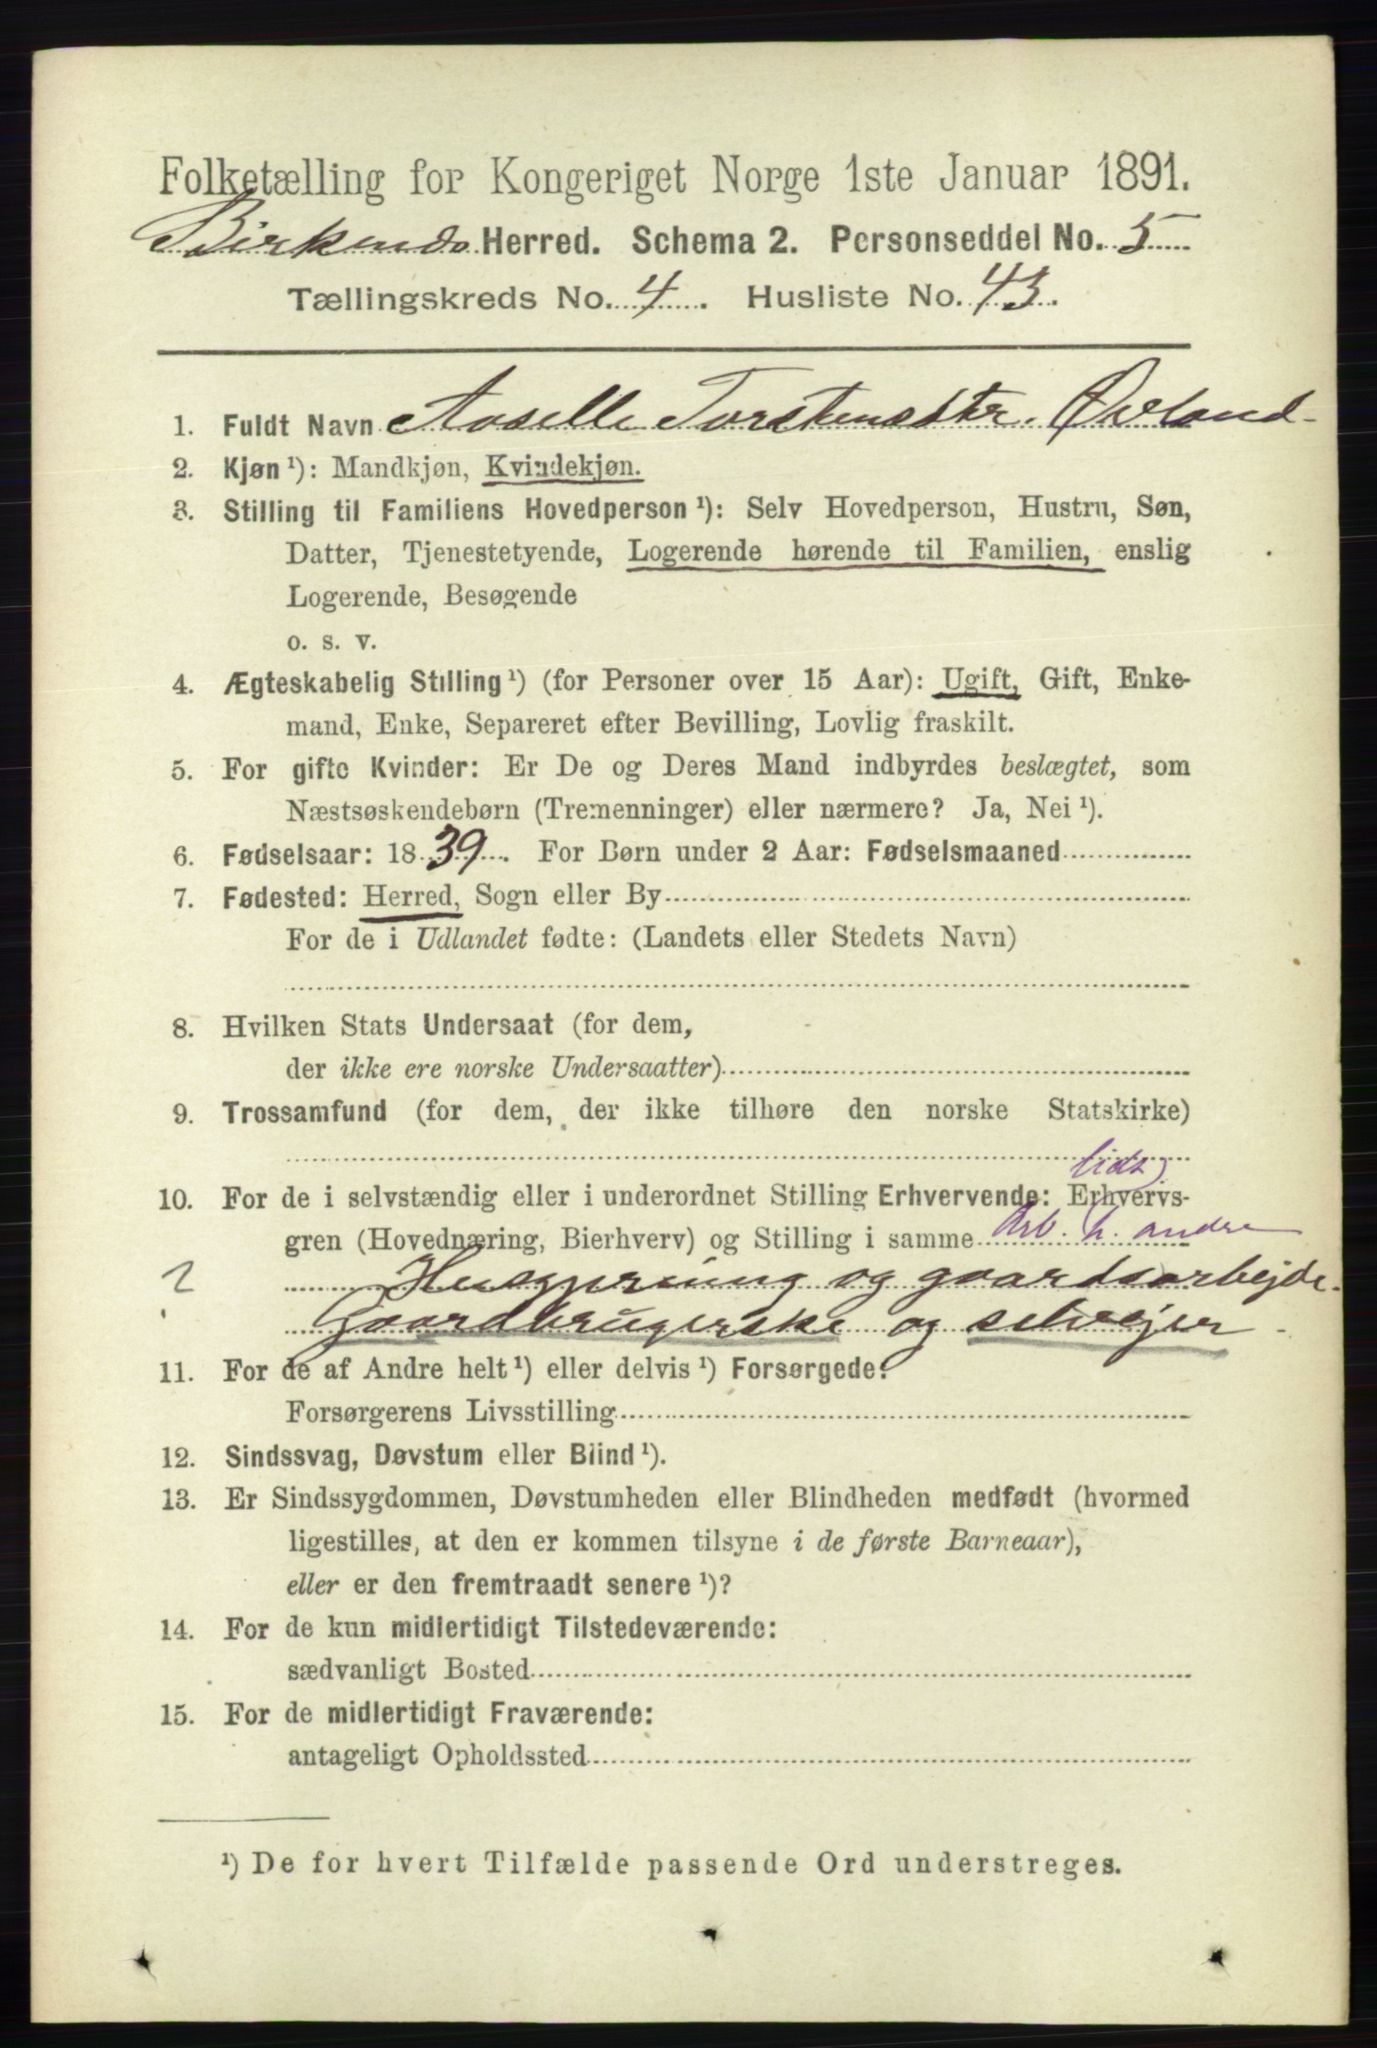 Folketælling for Kongeriget Norge 1ste Januar 1891.
Birkenes Herred. Schema 2. Personseddel No. 5
Tællingskreds No. 4. Husliste No. 43.
1. Fuldt Navn Aaselle Torstensdtr. Øvland
2. Kjøn ¹): Mandkjøn, Kvindekjøn.
3. Stilling til Familiens Hovedperson ¹): Selv Hovedperson, Hustru, Søn,
Datter, Tjenestetyende, Logerende hørende til Familien, enslig
Logerende, Besøgende
o. s. v.
4. Ægteskabelig Stilling ¹) (for Personer over 15 Aar): Ugift, Gift, Enke-
mand, Enke, Separeret efter Bevilling, Lovlig fraskilt.
5. For gifte Kvinder: Er De og Deres Mand indbyrdes beslægtet, som
Næstsøskendebørn (Tremenninger) eller nærmere? Ja, Nei ¹).
6. Fødselsaar: 1839. For Børn under 2 Aar: Fødselsmaaned
7. Fødested: Herred, Sogn eller By
For de i Udlandet fødte: (Landets eller Stedets Navn)
8. Hvilken Stats Undersaat (for dem,
der ikke ere norske Undersaatter)
9. Trossamfund (for dem, der ikke tilhøre den norske Statskirke)
10. For de i selvstændig eller i underordnet Stilling Erhvervende: Erhvervs-
gren (Hovednæring, Bierhverv) og Stilling i samme Arb. h. andre
? Husgjerning og gaardsarbejde.
Gaardbrugerske og selvejer.
11. For de af Andre helt ¹) eller delvis ¹) Forsørgede:
Forsørgerens Livsstilling
12. Sindssvag, Døvstum eller Blind ¹).
13. Er Sindssygdommen, Døvstumheden eller Blindheden medfødt (hvormed
ligestilles, at den er kommen tilsyne i de første Barneaar),
eller er den fremtraadt senere ¹)?
14. For de kun midlertidigt Tilstedeværende:
sædvanligt Bosted
15. For de midlertidigt Fraværende:
antageligt Opholdssted
¹) De for hvert Tilfælde passende Ord understreges.